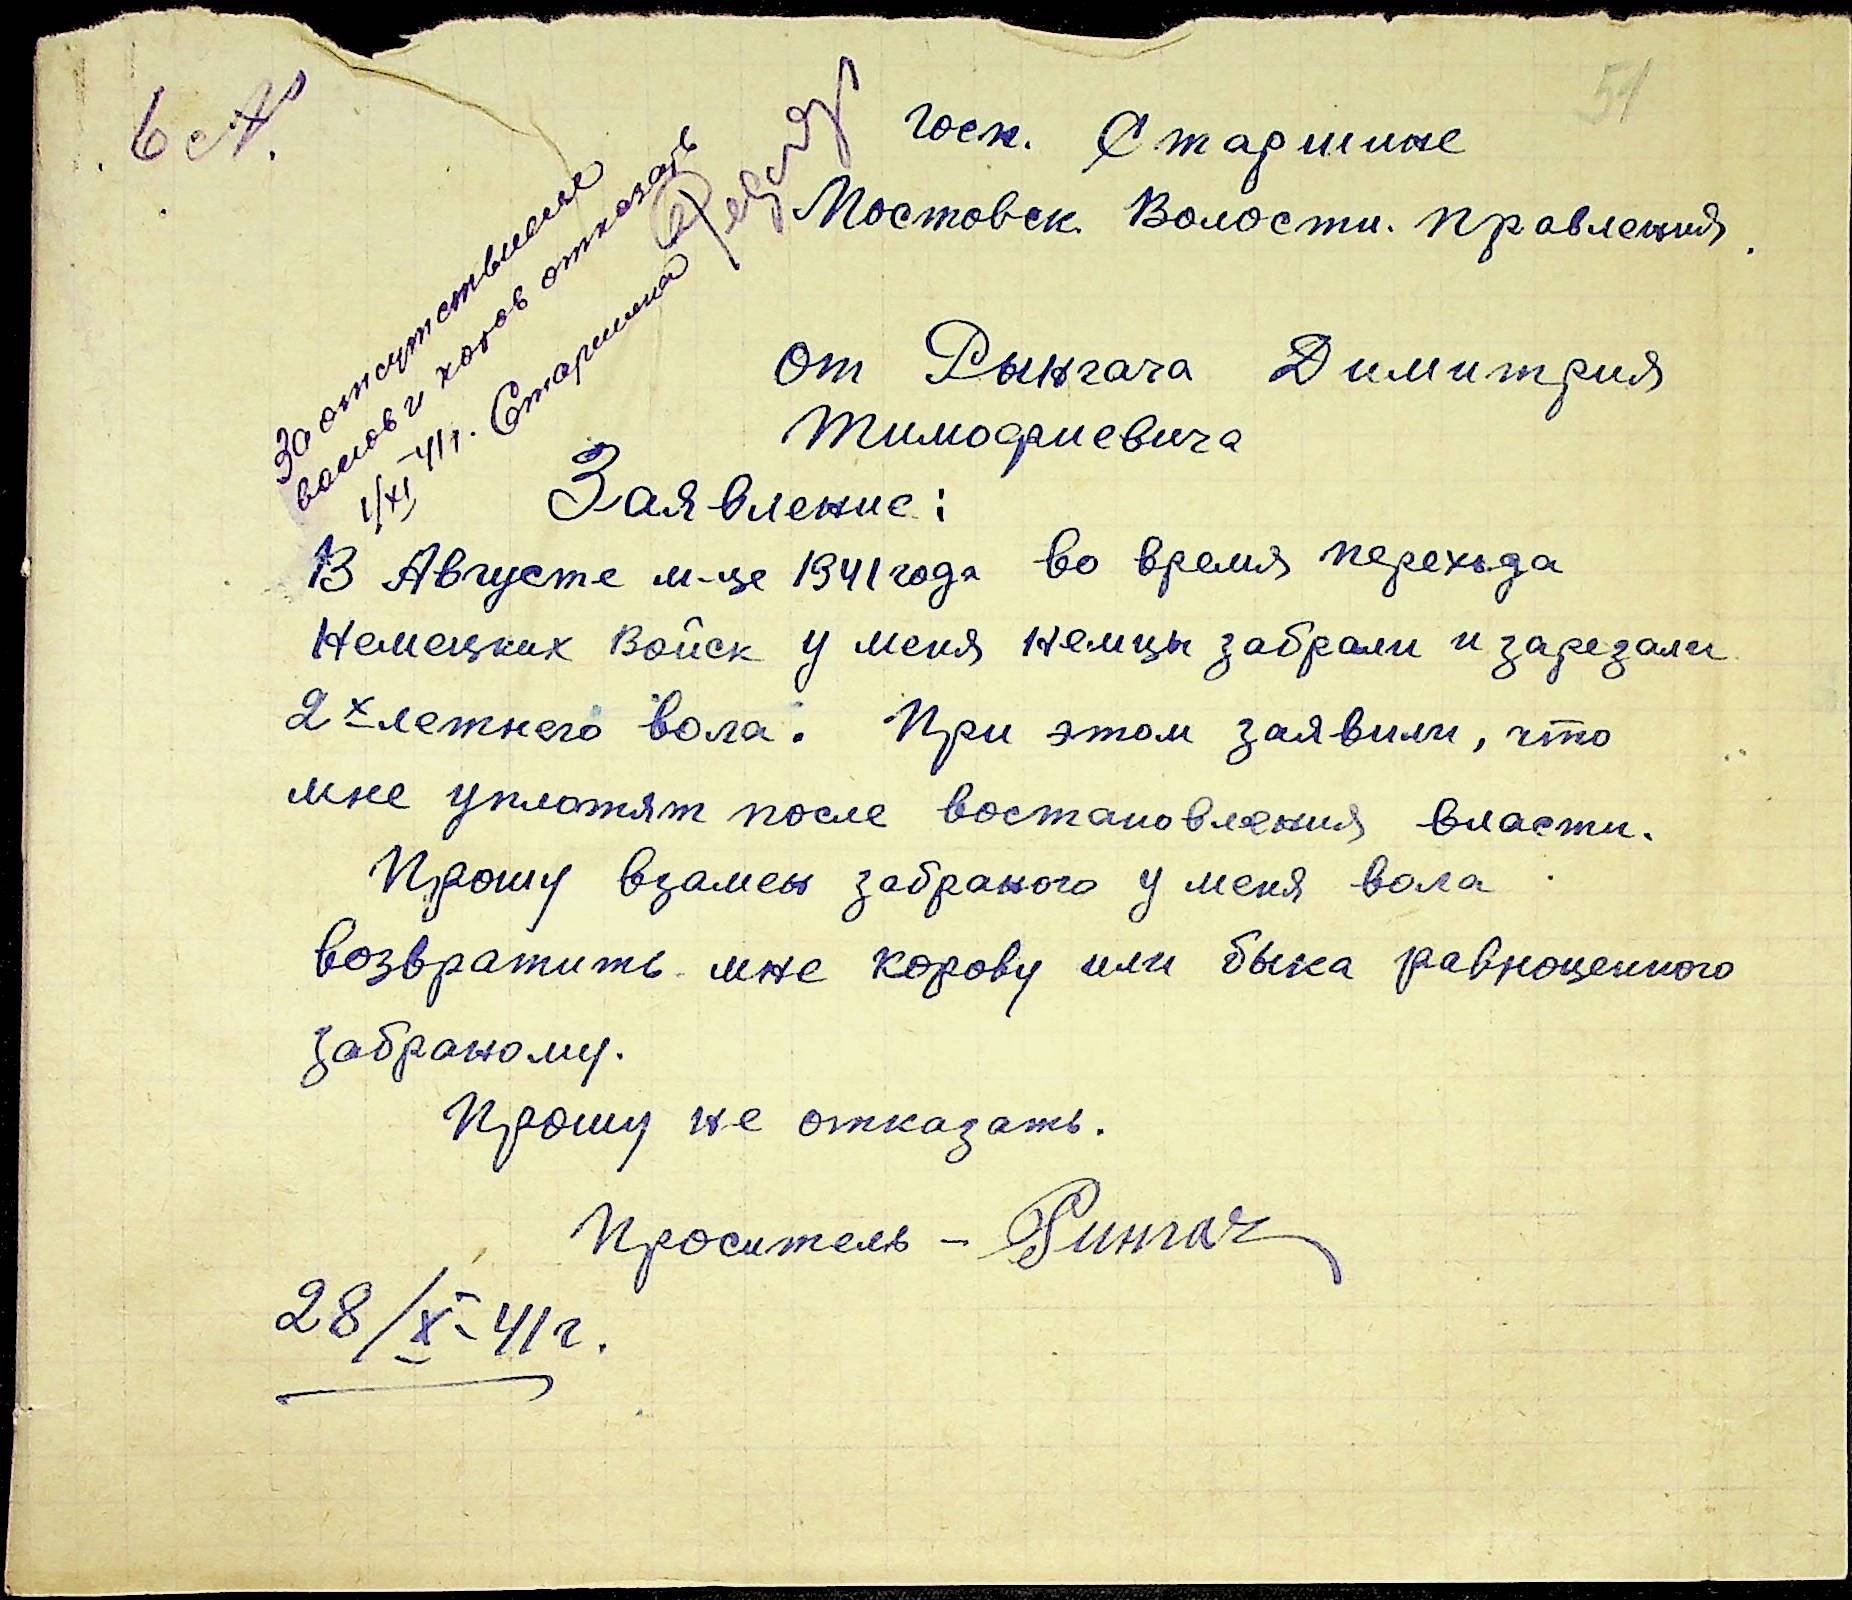 51
госп. Старшине
Мостовск. Волостн. правления.
От Рынгача Димитрия
Тимофиевича
За отсутствием
волов и коров отказать
1/XI-41г. Старшина
Заявление:
В Августе м-це 1941 года во время перехода
Немецких войск у меня немцы забрали и зарезали
2х летнего вола. При этом заявили, что
мне уплотят после востановления власти.
Прошу взамен забраного у меня вола
возвратить мне корову или быка равноценного
забраному.
Прошу не отказать.
Проситель - Рингач
28/X-41г.